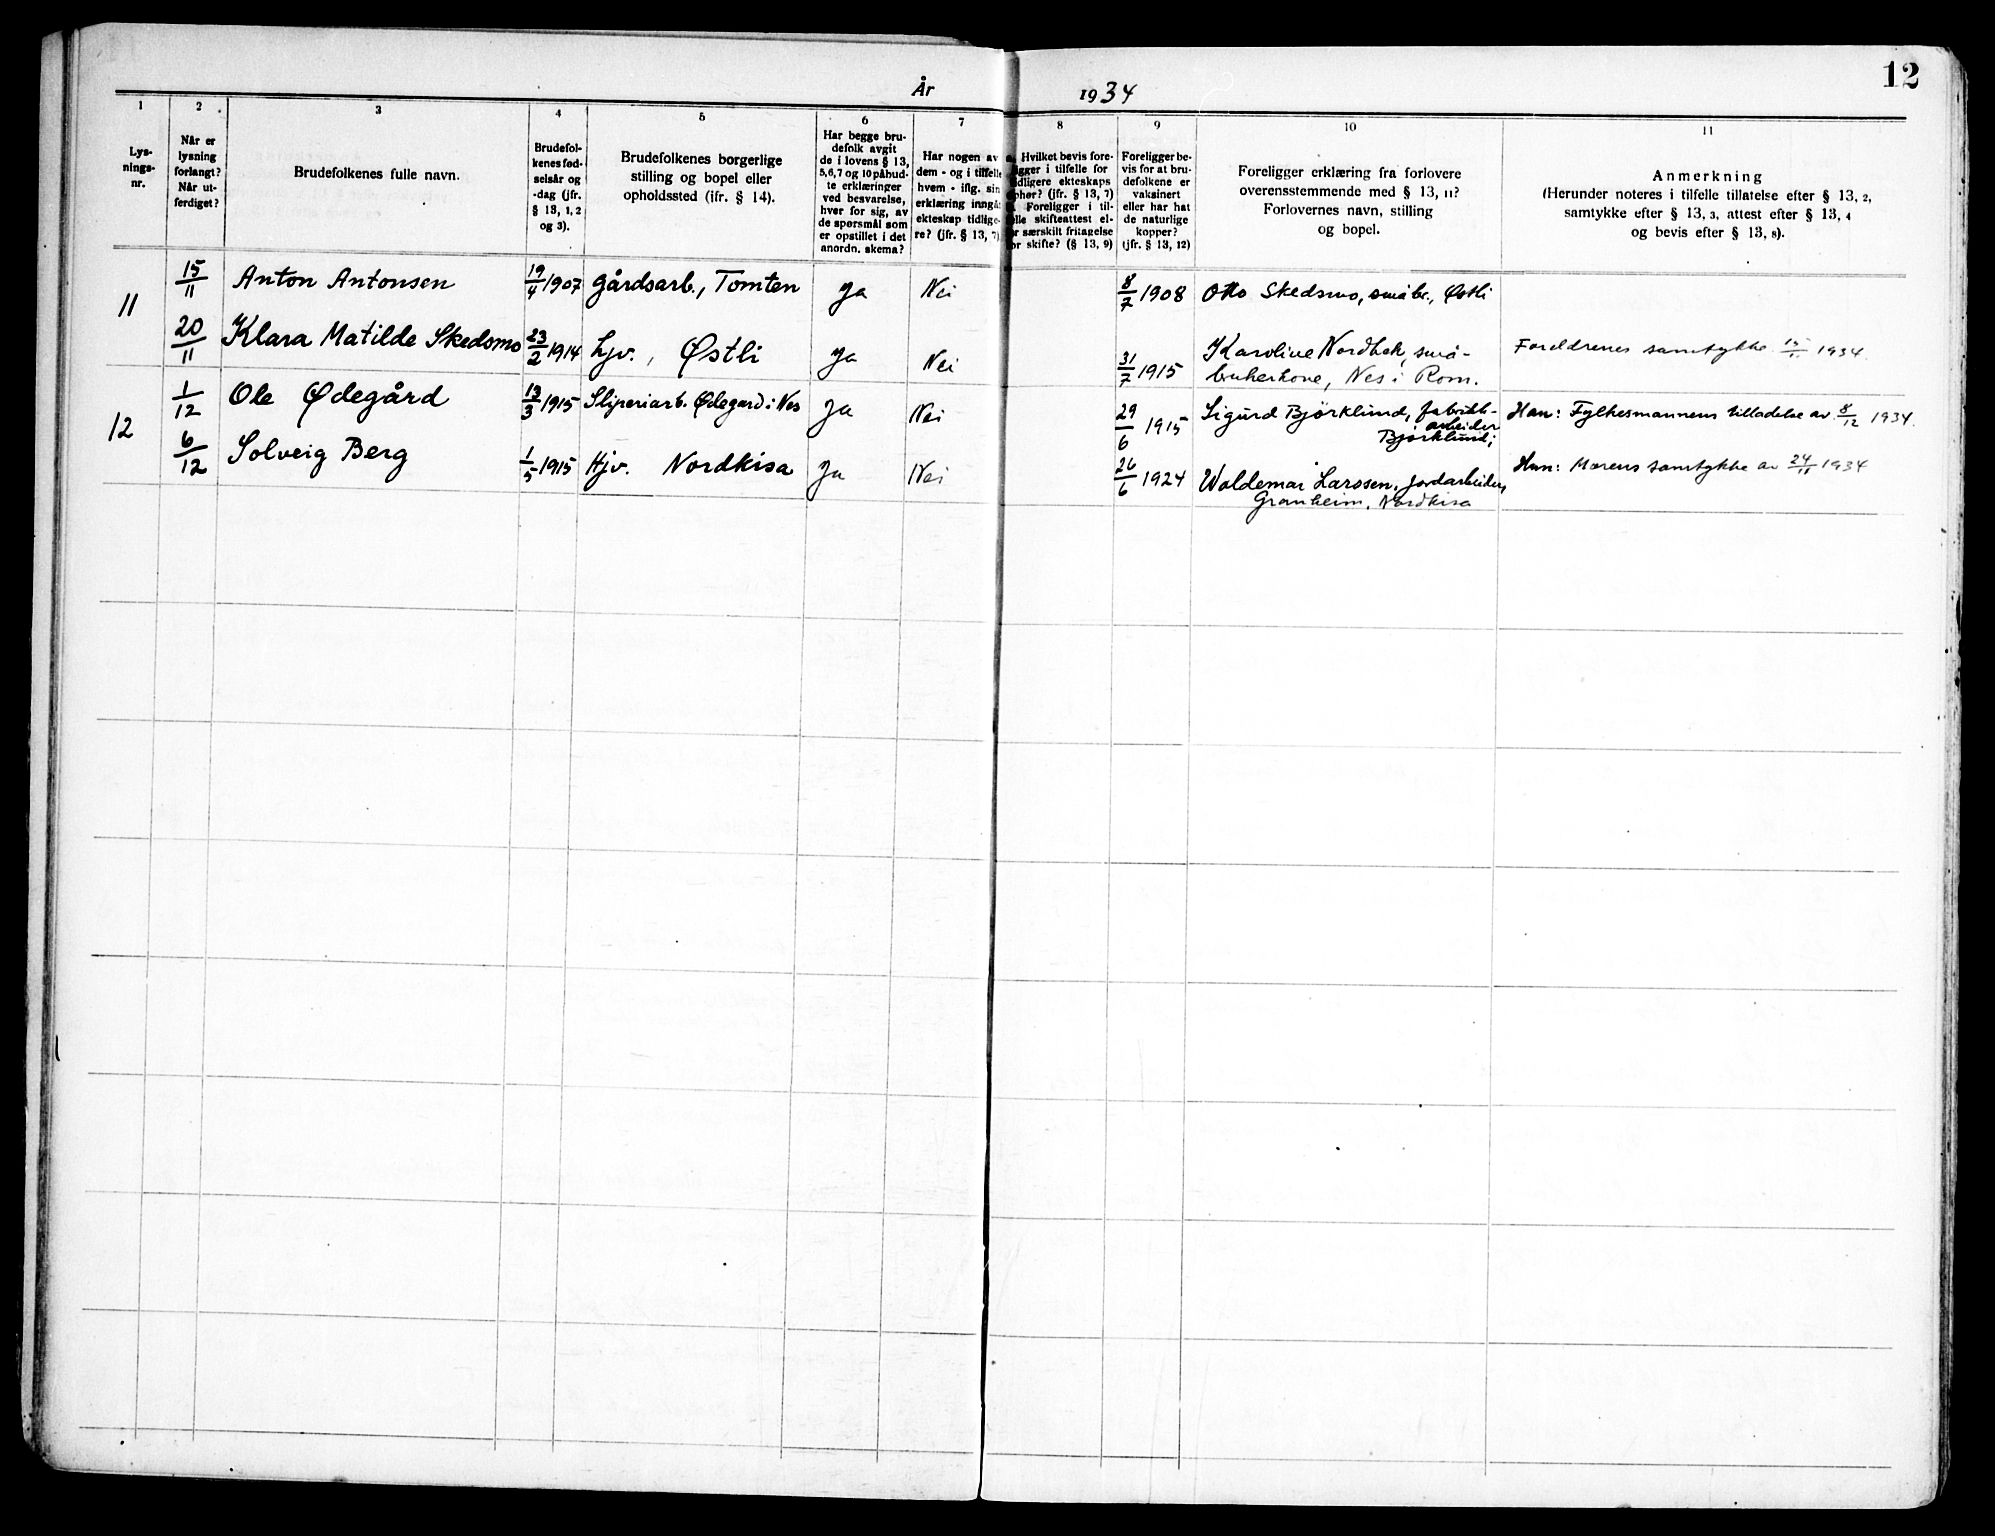 12
År 1934
1
2
3
4
5
6
7
8
9
10
11
Lys-
nings-
nr.
Når er
lysning
forlangt?
Når ut-
ferdiget?
Brudefolkenes fulle navn.
Brudefol-
kenes fød-
selsår og
-dag (jfr.
§ 13, 1, 2
og 3).
Brudefolkenes borgerlige
stilling og bopel eller
opholdssted (ifr. § 14).
Har begge bru-
defolk avgit
de i lovens § 13,
5, 6, 7 og 10 påbud-
te erklæringer
ved besvarelse,
hver for sig, av
de spørsmål som
er opstillet i det
anordn. skema?
Har nogen av
dem - og i tilfelle
hvem - iflg. sin
erklæring inngå
ekteskap tidlige-
re? (jfr. § 13, 7)
Hvilket bevis fore-
igger i tilfelle for
idligere ekteskaps
pher? (jfr. § 13, 7)
Foreligger i til-
elle skifteattest el-
r særskilt fritagelse
or skifte? (§ 13, 9)
Foreligger be-
vis for at bru-
defolkene er
vaksinert
eller har hat
de naturlige
kopper?
(jfr. § 13, 12)
Foreligger erklæring fra forlovere
overensstemmende med § 13, 11?
Forlovernes navn, stilling
og bopel.
Anmerkning
(Herunder noteres i tilfelle tillatelse efter § 13, 2,
samtykke efter § 13, 3, attest efter § 13, 4
og bevis efter § 13, 8).
11 15/11 Anton Antonsen 19/4 1907 gårdsarb., Tomten Ja Nei 8/7 1908 Otto Skedsmo, småbr., Østli
20/11 Klara Matilde Skedsmo 23/2 1914 hjv., Østli Ja Nei 31/7 1915 Karoline Nordbek, små- Foreldrenes samtykke 15/11 1934.
brukerkone, Nes i Rom.
12 1/12 Ole Ødegård 13/3 1915 Sliperiarb. Ødegard i Nes Ja Nei 29/6 1915 Sigurd Björklund, fabrikk- Han: Fylkesmannens tilladelse av 8/12 1934.
arbeider
Björklund;
6/12 Solveig Berg 1/5 1915 Hjv. Nordkisa Ja Nei 26/6 1924 Waldemar Larssen, jordarbeider, Hun: Morens samtykke av 24/11 1934
Granheim, Nordkisa